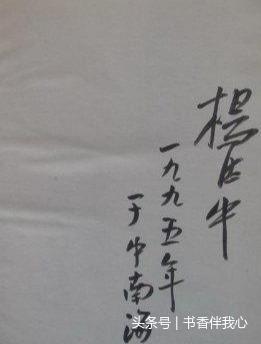 杨占牛
一九九五年
于中南海
头条号 | 书香伴我心